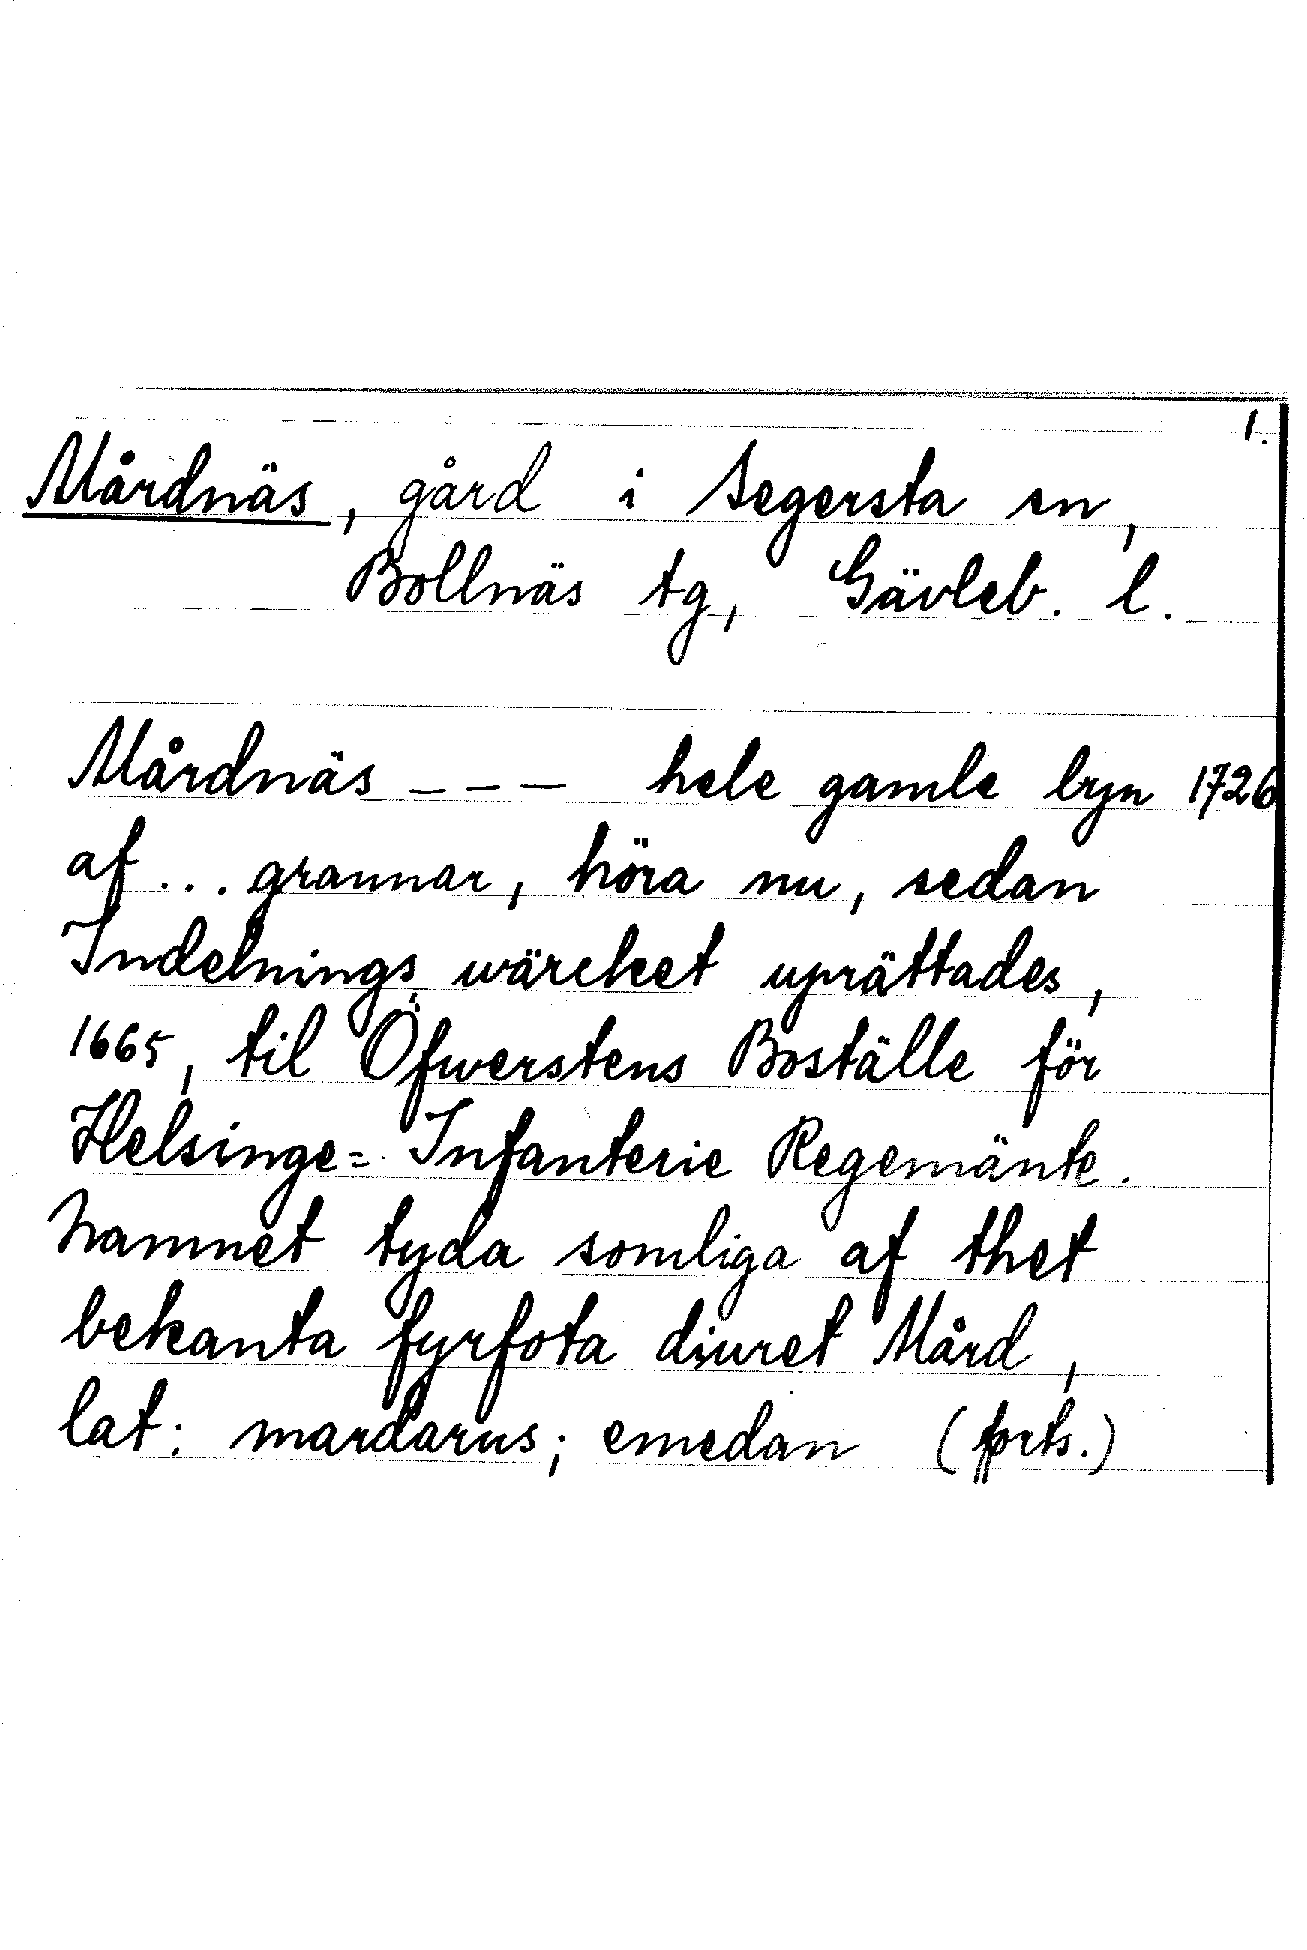 1.
Mårdnäs, gård i Segersta sn,
Bollnäs tg, Gävleb. l.
Mårdnäs - - - hele gamle byn 1726
af ... grannar, höra nu, sedan
Indelnings wärcket uprättades,
1665, til Öfwerstens Boställe för
Helsinge= Infanterie Regemänte.
Namnet tyda somliga af thet
bekanta fyrfota diuret Mård,
lat: mardarus; emedan (forts.)